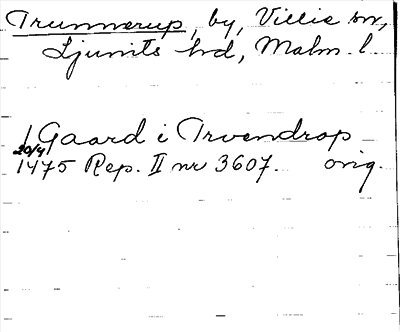 Trunnerup, by, Villie sn,
Ljunits hd, Malm. l.
1 Gaard i Trvendrop
20/4
1475 Rep. II nr 3607. orig.